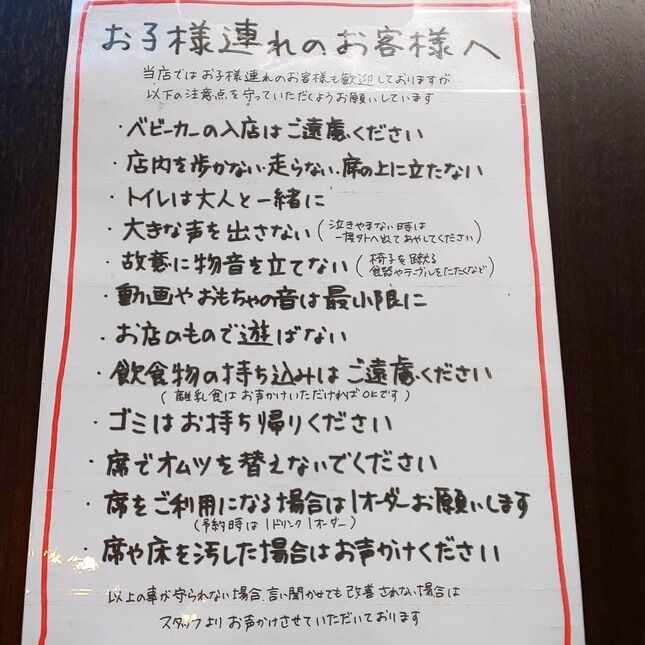 お子様連れのお客様へ
当店ではお子様連れのお客様も歓迎しておりますが
以下の注意点を守っていただくようお願いしています
・ベビーカーの入店はご遠慮ください
・店内を歩かない・走らない・席の上に立たない
・トイレは大人と一緒に
・大きな声を出さない（泣きやまない時は
一度外へ出てあやしてください）
・故意に物音を立てない（椅子を蹴る
食器やテーブルをたたくなど）
・動画やおもちゃの音は最小限に
・お店のもので遊ばない
・飲食物の持ち込みはご遠慮ください
（離乳食はお声かけいただければOKです）
・ゴミはお持ち帰りください
・席でオムツを替えないでください
・席をご利用になる場合は1オーダーお願いします
（予約時は1ドリンク1オーダー）
・席や床を汚した場合はお声かけください
以上の事が守られない場合、言い聞かせても改善されない場合は
スタッフよりお声かけさせていただいております